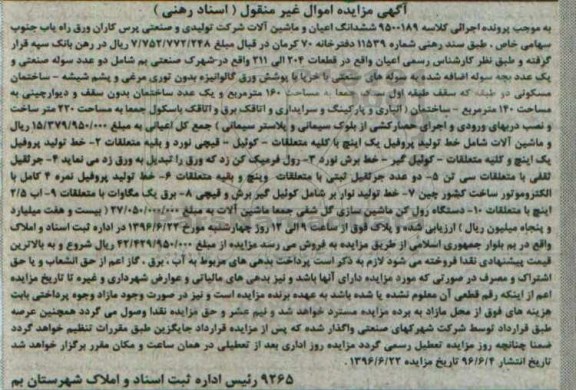 آگهی مزایده اموال غیر منقول ( اسناد رهنی )
به موجب پرونده اجرائی کلاسه ۹۵۰۰۱۸۹ ششدانگ اعیان و ماشین آلات شرکت تولیدی و صنعتی پرس کاران ورق راه یاب جنوب
سهامی خاص ، طبق سند رهنی شماره ۱۱۵۳۹ دفترخانه ۷۰ کرمان در قبال مبلغ ۷/۷۵۲/۷۷۲/۲۴۸ ریال در رهن بانک سپه قرار
گرفته و طبق نظر کارشناس رسمی اعیان واقع در قطعات ۲۰۴ الی ۲۱۱ واقع در شهرک صنعتی بم شامل دو عدد سوله صنعتی و
یک عدد بچه سوله اضافه شده به سوله های صنعتی با خرپا با پوشش ورق گالوانیزه بدون توری مرغی و پشم شیشه - ساختمان
مسکونی دو طبقه که سقف طبقه اول جمعا به مساحت ۱۶۰ مترمربع و یک عدد ساختمان بدون سقف و دیوارچینی به
مساحت ۱۴۰ مترمربع - ساختمان ( انباری و پارکینگ و سرایداری و اتاقک برق و اتاقک باسکول جمعا به مساحت ۲۲۰ متر ساخت
و نصب دربهای ورودی و اجرای حصارکشی از بلوک سیمانی و پلاستر سیمانی ) جمع کل اعیانی به مبلغ ۱۵/۳۷۹/۹۵۰/۰۰۰ ریال
و ماشین آلات شامل خط تولید پروفیل یک اینچ با کلیه متعلقات - کوئیل - قیچی نورد و بقیه متعلقات ۲- خط تولید پروفیل
یک اینچ و کلیه متعلقات - کوئیل گیر - خط برش نورد ۳- رول فرمینگ کن زد که ورق را تبدیل به ورق زد می نماید ۴- جرثقیل
ثقفی با متعلقات سی تن ۵- دو عدد جرثقیل ثبتی با متعلقات وینچ و بقیه متعلقات ۶- خط تولید پروفیل نمره ۴ کامل با
الکتروموتور ساخت کشور چین ۷- خط تولید نوار بر شامل کوئیل گیر برش و قیچی ۸- برق یک مگاوات با متعلقات ۹- آب ۲/۵
اینچ با متعلقات ۱۰- دستگاه رول کن ماشین سازی گل شفی جمعا ماشین آلات به مبلغ ۲۷/۰۵۰/۰۰۰/۰۰۰ ( بیست و هفت میلیارد
و پنجاه میلیون ریال ) ارزیابی شده و پلاک فوق از ساعت ۹ الی ۱۲ روز چهارشنبه مورخ ۱۳۹۶/۶/۲۲ در اداره ثبت اسناد و املاک
واقع در بم بلوار جمهوری اسلامی از طریق مزایده به فروش می رسد مزایده از مبلغ ۴۲/۴۲۹/۹۵۰/۰۰۰ ریال شروع و به بالاترین
قیمت پیشنهادی نقدا فروخته می شود لازم به ذکر است پرداخت بدهی های مربوط به آب ، برق ، گاز اعم از حق انشعاب و یا حق
اشتراک و مصرف در صورتی که مورد مزایده دارای آنها باشد و نیز بدهی های مالیاتی و عوارض شهرداری و غیره تا تاریخ مزایده
اعم از اینکه رقم قطعی آن معلوم نشده یا شده باشد به عهده برنده مزایده است و نیز در صورت وجود مازاد وجوه پرداختی بابت
هزینه های فوق از محل مازاد به برنده مزایده مسترد خواهد شد و نیم عشر و حق مزایده نقدا وصول می گردد همچنین عرصه
طبق قرارداد توسط شرکت شهرکهای صنعتی واگذار شده که پس از مزایده قرارداد جایگزین طبق مقررات تنظیم خواهد گردد
ضمنا چنانچه روز مزایده تعطیل رسمی گردد مزایده روز اداری بعد از تعطیلی در همان ساعت و مکان مقرر برگزار خواهد شد
تاریخ انتشار ۹۶/۶/۴ تاریخ مزایده ۱۳۹۶/۶/۲۲ .
۹۲۶۵ رئیس اداره ثبت اسناد و املاک شهرستان بم